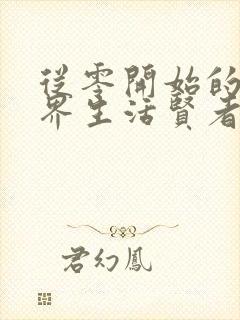 從零開始的
界生活賢者
君幻鳳